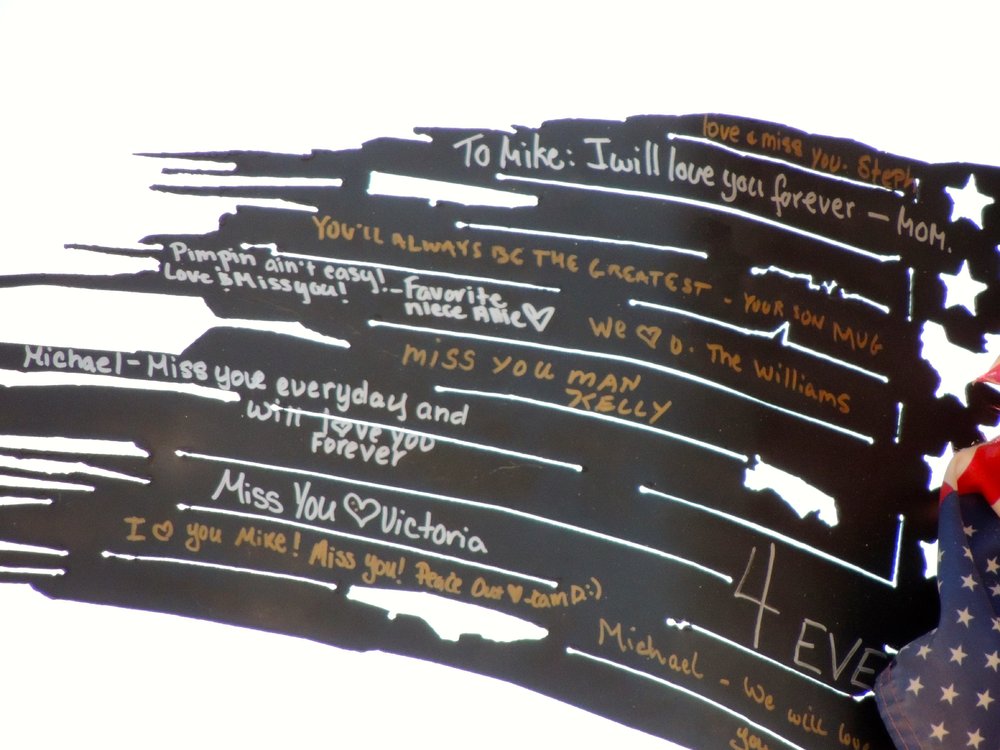 love & miss you. Steph
To Mike: I will love you forever — MOM.
YOU'LL ALWAYS BE THE GREATEST - YOUR SON MUG
Pimpin ain't easy! - Favorite
Love & Miss you! niece Allie ♡
We ♡ U. The Williams
miss you MAN
KELLY
Michael - Miss you everyday and
will love you
Forever
Miss You ♡ Victoria
I ♡ you Mike! Miss you! Peace Out ♥ -Cam D:)
4 EVE
Michael - We will love
you